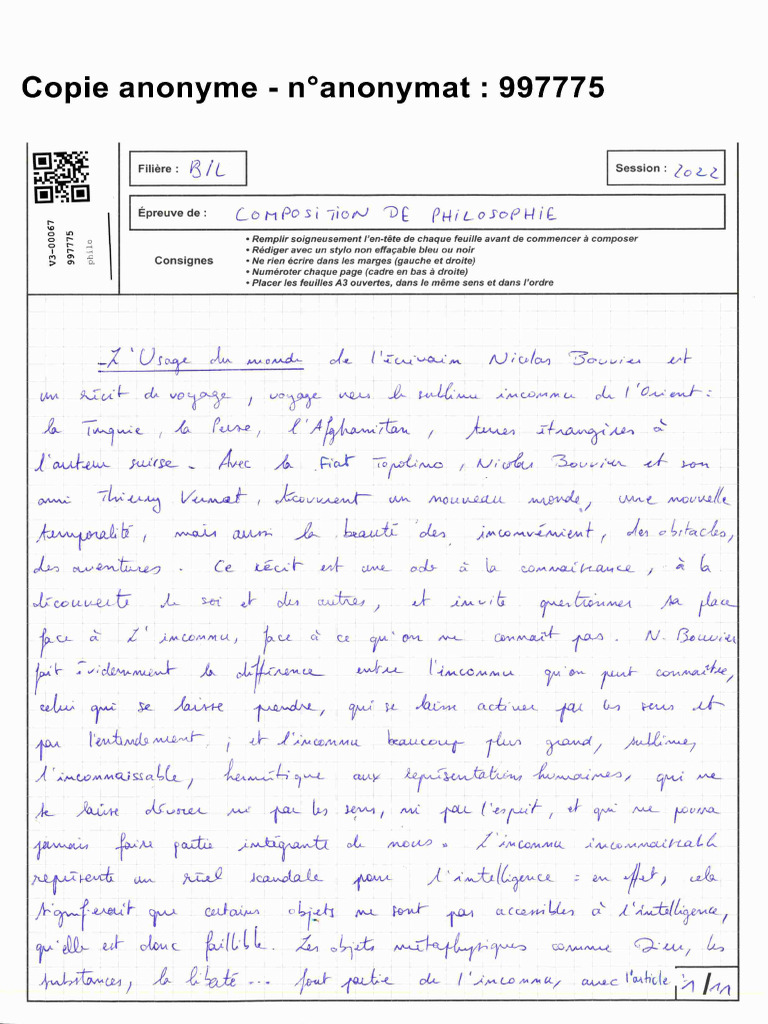 Copie anonyme - n°anonymat : 997775
Filière : B/L
Session : 2022
Épreuve de : COMPOSITION DE PHILOSOPHIE
V3-00067
997775
philo
Consignes
• Remplir soigneusement l'en-tête de chaque feuille avant de commencer à composer
• Rédiger avec un stylo non effaçable bleu ou noir
• Ne rien écrire dans les marges (gauche et droite)
• Numéroter chaque page (cadre en bas à droite)
• Placer les feuilles A3 ouvertes, dans le même sens et dans l'ordre
L'Usage du monde de l'écrivain Nicolas Bouvier est
un récit de voyage, voyage vers le sublime inconnu de l'Orient :
la Turquie, la Perse, l'Afghanistan, terres étrangères à
l'auteur suisse. Avec la Fiat Topolino, Nicolas Bouvier et son
ami Thierry Vernat, découvrent un nouveau monde, une nouvelle
temporalité, mais aussi la beauté des inconvénient, des obstacles,
des aventures. Ce récit est une ode à la connaissance, à la
découverte de soi et des autres, et invite questionner sa place
face à L'inconnu, face à ce qu'on ne connaît pas. N. Bouvier
fait évidemment la différence entre l'inconnu qu'on peut connaître,
celui qui se laisse prendre, qui se laisse activer par les sens et
par l'entendement, ; et l'inconnu beaucoup plus grand, sublime,
l'inconnaissable, hermétique aux représentations humaines, qui ne
se laisse dévorer ni par les sens, ni par l'esprit, et qui ne pourra
jamais faire partie intégrante de nous. L'inconnu inconnaissable
représente un réel scandale pour l'intelligence : en effet, cela
signifierait que certains objets ne sont pas accessibles à l'intelligence,
qu'elle est donc faillible. Les objets métaphysiques comme Dieu, les
substances, la liberté... font partie de l'inconnu, avec l'article
1/11